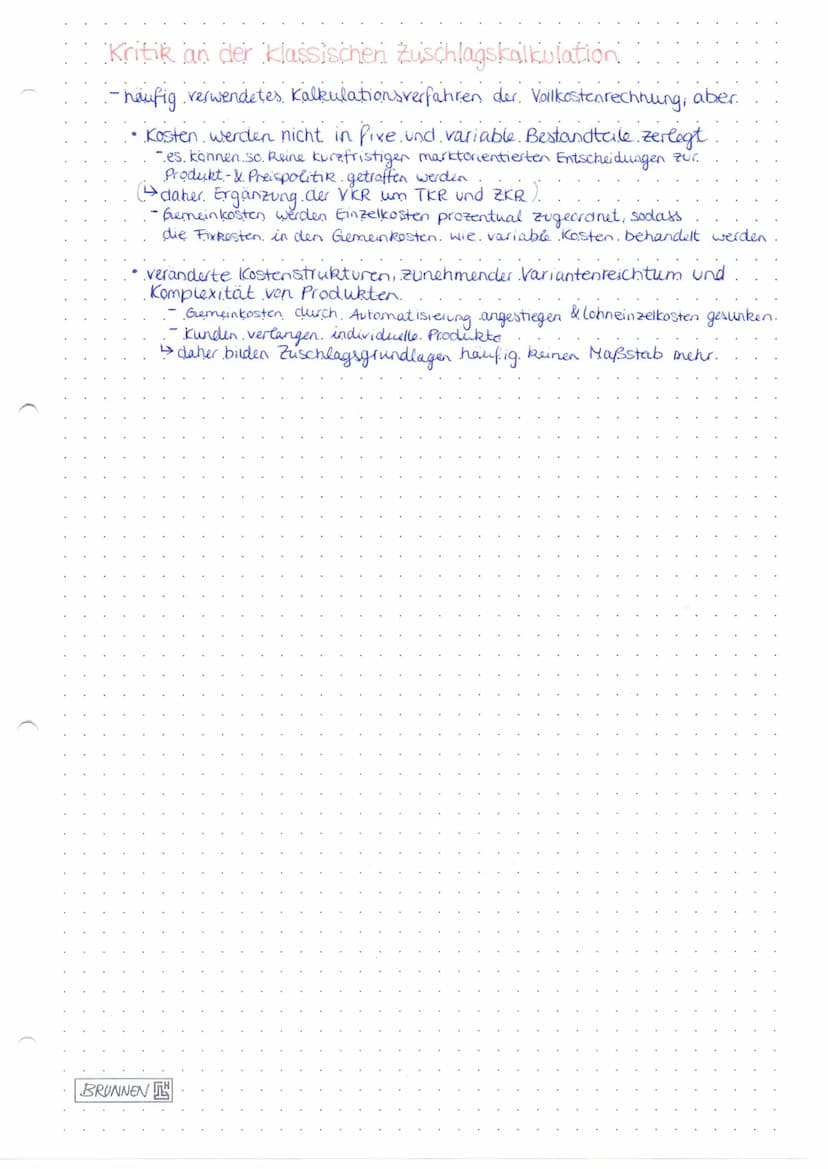 Kritik an der klassischen Zuschlagskalkulation
- häufig verwendetes Kalkulationsverfahren der Vollkostenrechnung, aber
• Kosten werden nicht in fixe und variable Bestandteile zerlegt
- es können so keine kurzfristigen marktorientierten Entscheidungen zur
Produkt- & Preispolitik getroffen werden
(↳ daher Ergänzung der VKR um TKR und ZKR)
- Gemeinkosten werden Einzelkosten prozentual zugeordnet, sodass
die Fixkosten in den Gemeinkosten wie variable Kosten behandelt werden
• veränderte Kostenstrukturen, zunehmender Variantenreichtum und
Komplexität von Produkten
- Gemeinkosten durch Automatisierung angestiegen & Lohneinzelkosten gesunken
- Kunden verlangen individuelle Produkte
↳ daher bilden Zuschlagsgrundlagen häufig keinen Maßstab mehr
BRUNNEN